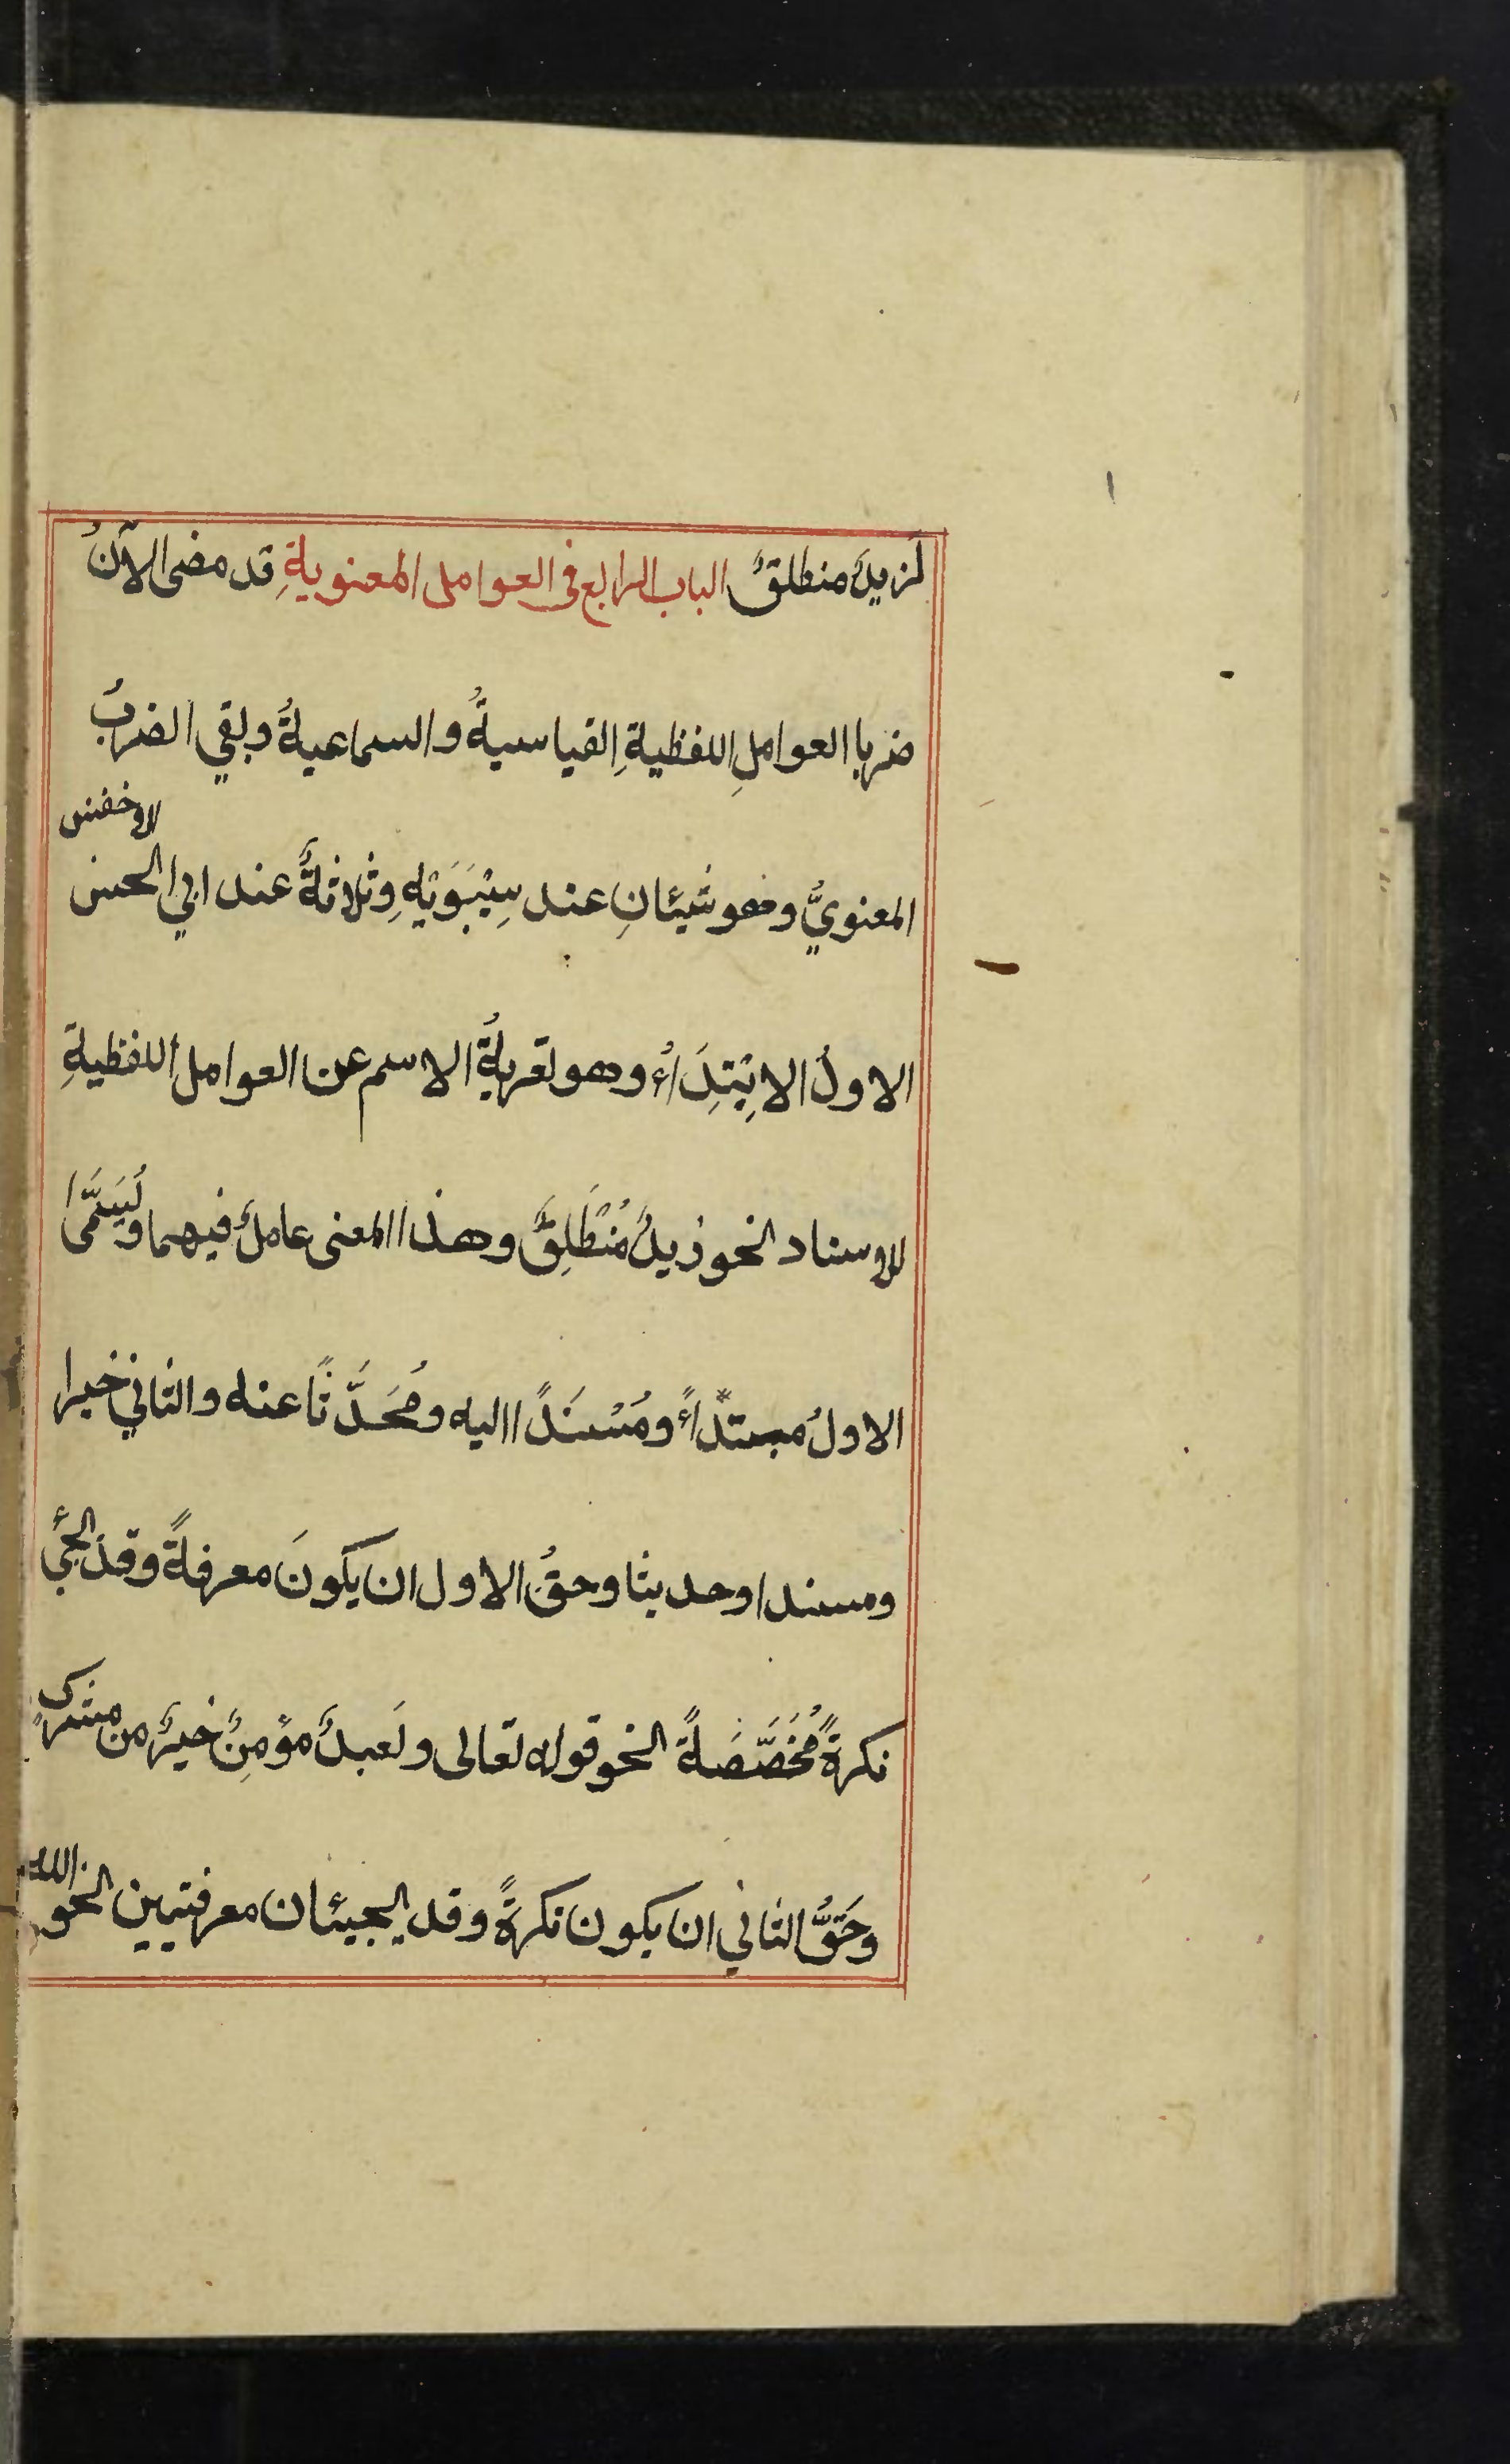 لَزيدٌ منطلقٌ الباب الرابع فى العوامل المعنويةِ قد مضى الآنُ
ضربا العواملِ اللفظيةِ القياسيةُ والسماعيةُ وبقي الضربُ
المعنويُّ وهو شيئانِ عند سِيْبَوَيْهِ وثلاثةٌ عند ابي الحسن الاخفش
الاولُ الاِبْتِدَاءُ وهو تعريةُ الاسم عن العوامل اللفظيةِ
للاسناد نحو زيدٌ مُنْطَلِقٌ وهذا المعنى عاملٌ فيهما ويُسَمَّى
الاولُ مبتدًاءً ومُسْنَدًا اليه ومُحَدَّثًا عنه والثاني خبرا
ومسندا وحديثا وحقُّ الاول ان يكونَ معرفةً وقد يجئُ
نكرةً مُخَصَّصَةً نحو قوله تعالى ولَعبدٌ مؤمِنٌ خيرٌ من مشركٍ
وحَقُّ الثاني ان يكون نكرةً وقد يجيئان معرفتين نحو الله